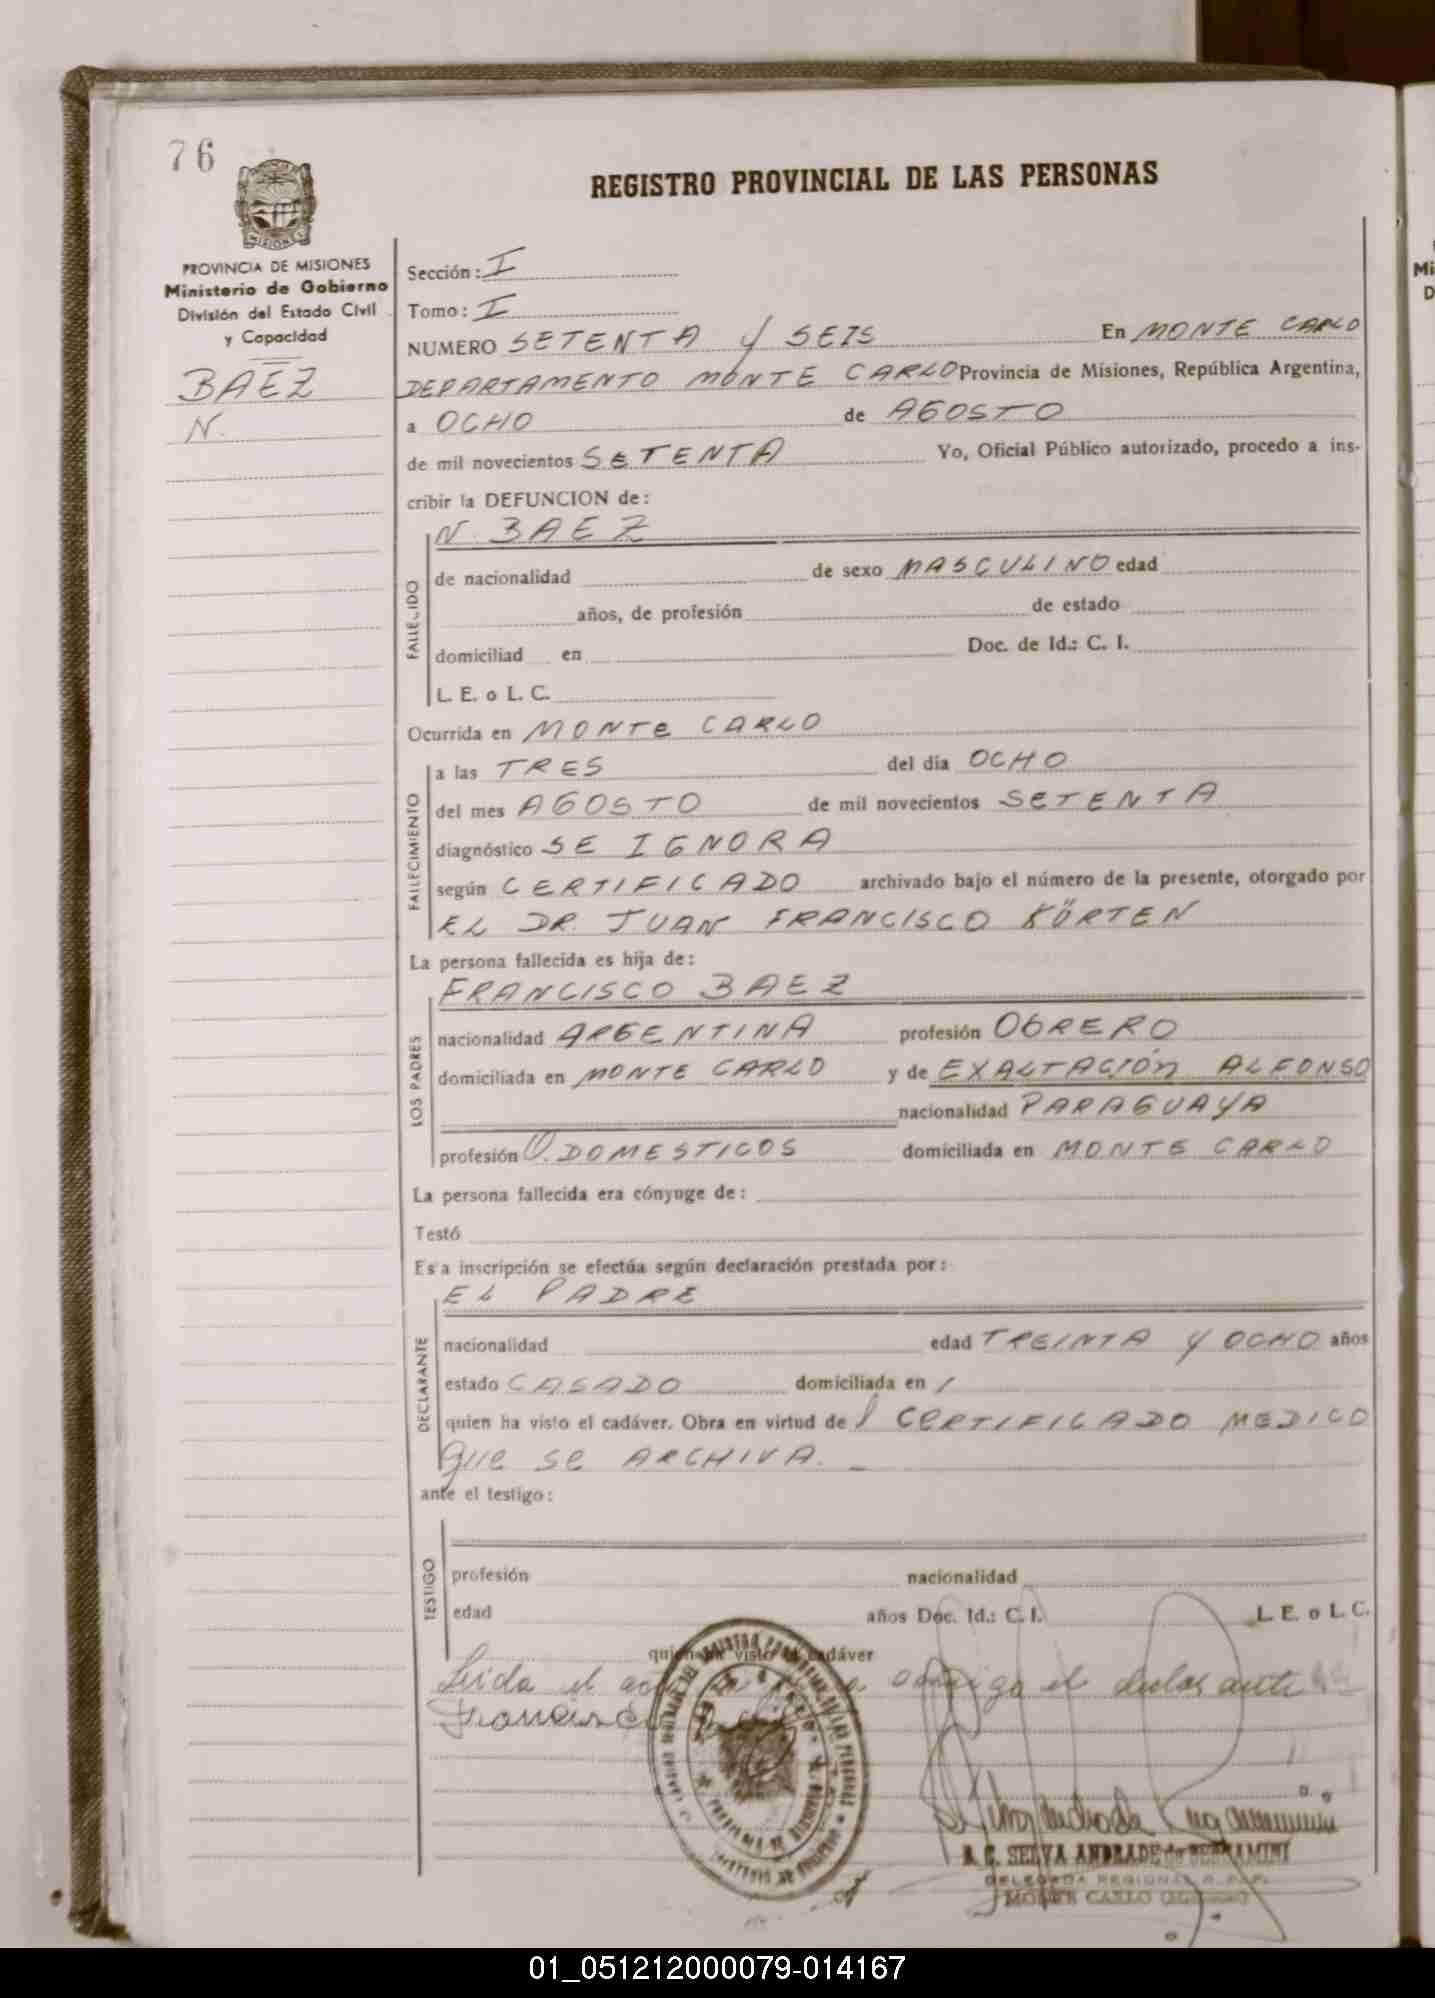 76
REGISTRO PROVINCIAL DE LAS PERSONAS
MISIONES
PROVINCIA DE MISIONES
Ministerio de Gobierno
División del Estado Civil
y Capacidad
BAEZ
N.
Sección: I
Tomo: I
NUMERO SETENTA Y SEIS En MONTE CARLO
DEPARTAMENTO MONTE CARLO Provincia de Misiones, República Argentina,
a OCHO de AGOSTO
de mil novecientos SETENTA Yo, Oficial Público autorizado, procedo a ins-
cribir la DEFUNCION de:
N. BAEZ
FALLECIDO
de nacionalidad de sexo MASCULINO edad
años, de profesión de estado
domiciliad en Doc. de Id.: C. I.
L. E. o L. C.
Ocurrida en MONTE CARLO
FALECIMIENTO
a las TRES del día OCHO
del mes AGOSTO de mil novecientos SETENTA
diagnóstico SE IGNORA
según CERTIFICADO archivado bajo el número de la presente, otorgado por
EL DR. JUAN FRANCISCO KÖRTEN
La persona fallecida es hija de:
FRANCISCO BAEZ
LOS PADRES
nacionalidad ARGENTINA profesión OBRERO
domiciliada en MONTE CARLO y de EXALTACIÓN ALFONSO
nacionalidad PARAGUAYA
profesión Q. DOMESTICOS domiciliada en MONTE CARLO
La persona fallecida era cónyuge de:
Testó
Es a inscripción se efectúa según declaración prestada por:
EL PADRE
DECLARANTE
nacionalidad edad TREINTA Y OCHO años
estado CASADO domiciliada en /
quien ha visto el cadáver. Obra en virtud del CERTIFICADO MEDICO
que se ARCHIVA. _
ante el testigo:
TESTIGO
profesión nacionalidad
edad años Doc. Id.: C. I. L. E. o L. C.
quien ha visto el cadáver
Leida el conmigo el declarante
Francisco
S. C. SELVA ANDRADE de BERGAMINI
DELEGADA REGIONAL R.P.P.
MONTE CARLO
01_051212000079-014167